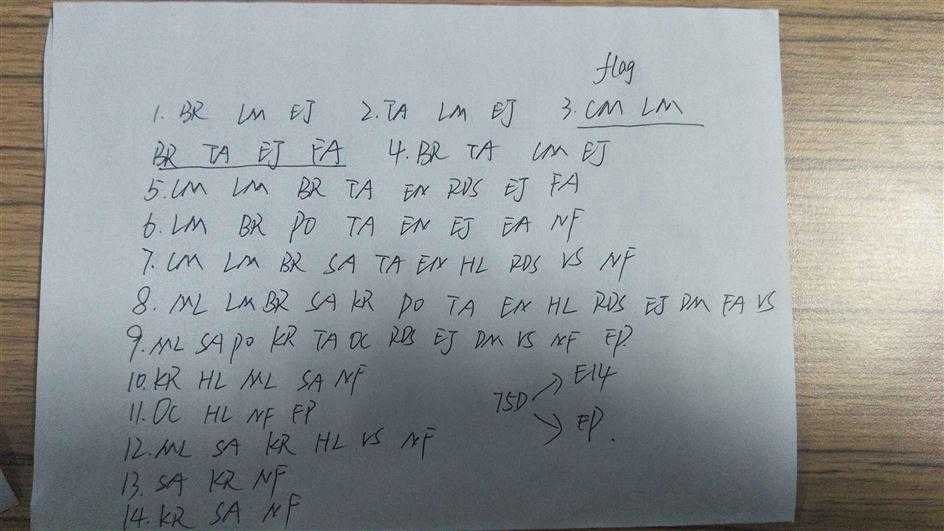 flag
1. BR LM EJ 2. TA LM EJ 3. CM LM
BR TA EJ FA 4. BR TA LM EJ
5. CM LM BR TA EN RDS EJ FA
6. LM BR PO TA EN EJ EA NF
7. CM LM BR SA TA EN HL RDS VS NF
8. ML LM BR SA KR PO TA EN HL RDS EJ DM FA VS
9. ML SA PO KR TA OC RDS EJ DM VS NF EP
10. KR HL ML SA NF
E14
75D
11. OC HL NF EP
EP.
12. ML SA KR HL VS NF
13. SA KR NF
14. KR SA NF